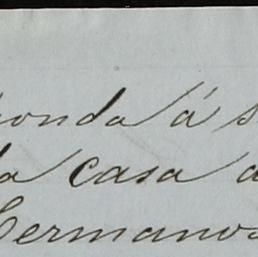 onda á s
la casa a
Hermanos